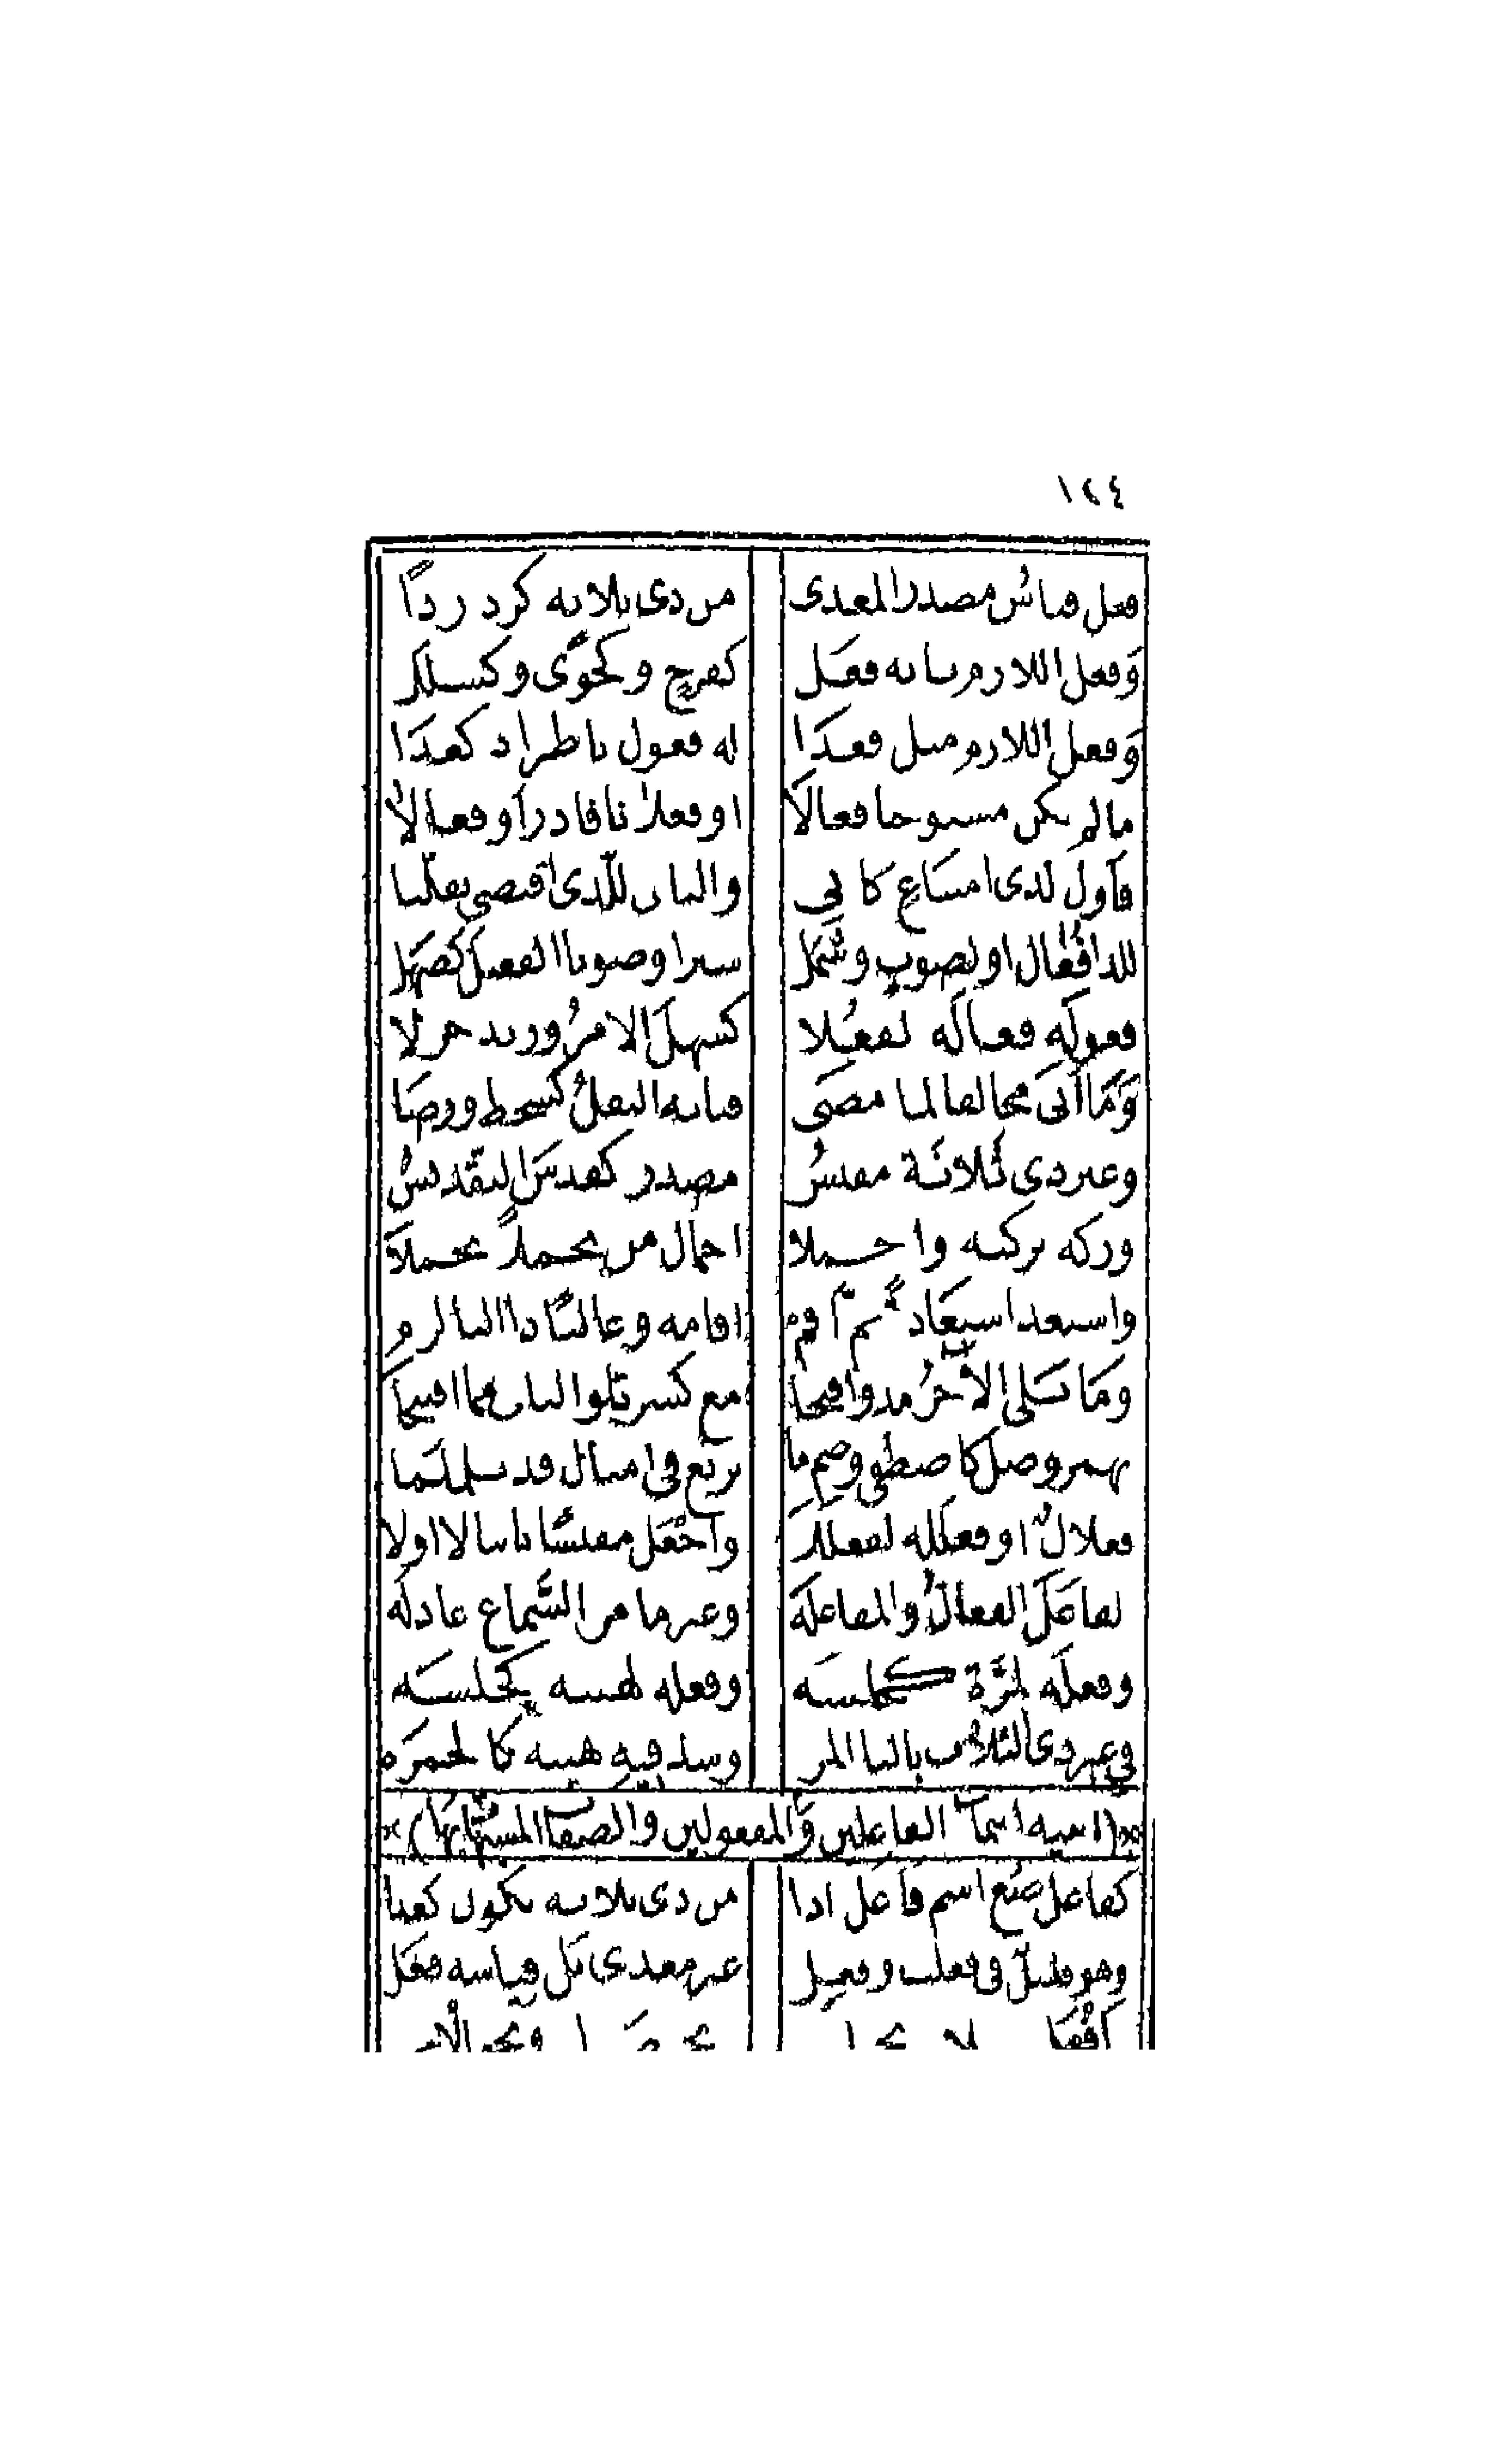 ١٢٤
فعل قياس مصدر المعدى من ذى ثلاثة كرد ردا
وفعل اللازم بابه فعل كفرح وكجوى وكشلل
وفعل اللازم مثل قعدا له فعول باطراد كغدا
ما لم يكن مستوجبا فعالا او فعلانا فادر او فعالا
فأول لذى امتناع كابى والثان للذى اقتضى تقلبا
للدا فعال او لصوت وشمل سيرا وصوتا الفعيل كصهل
فعولة فعالة لفعلا كسهل الامر وزيد جزلا
وما أتى مخالفا لما مضى فبابه النقل كسخط ورضا
وغير ذى ثلاثة مقيس مصدر كقدس التقديس
وزكه تزكية واجملا اجمال من تجملا تجملا
واستعذ استعاذة ثم أقم اقامة وغالبا ذا التا لزم
وما يلى الآخر مد وافتحا مع كسر تلو الثان مما افتتحا
بهمز وصل كاصطفى وضم ما يربع فى امثال قد تلملما
فعلال او فعللة لفعللا واجعل مقيسا ثانيا لا اولا
لفاعل الفعال والمفاعلة وغير ما مر السماع عادله
وفعلة لمرة كجلسه وفعلة لهيئة كجلسه
فى غير ذى الثلاث بالتا المر وشذ فيه هيئة كالخمره
(ابنية اسمآ الفاعلين والمفعولين والصفات المشبهة بها)
كفاعل صغ اسم فاعل اذا من ذى ثلاثة يكون كغذا
وهو قليل فى فعلت وفعل غير معدى بل قياسه فعل